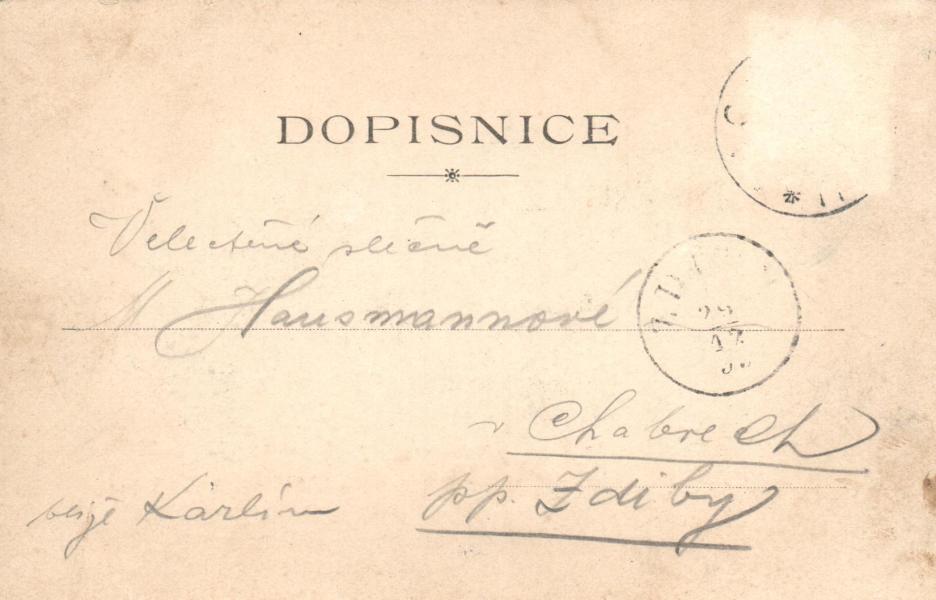 DOPISNICE
Velectěné slečně
M Hausmannové
22
v Chabrech
pp. Zdiby
Karlín